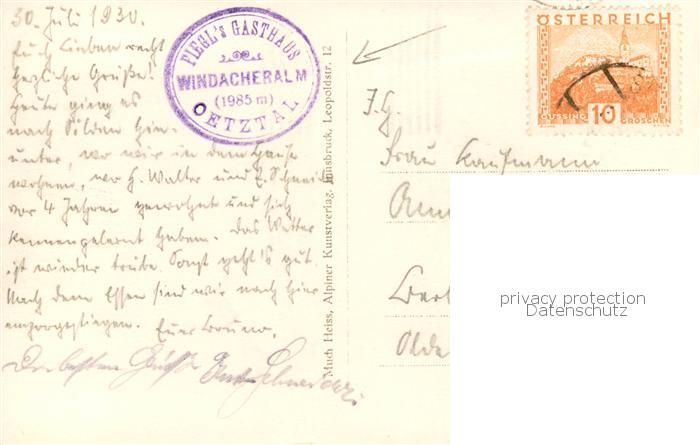 30. Juli 1930.
Euch Lieben recht
herzliche Grüße.
Heute ging es
nach Sölden hin-
unter, wo wir in dem Hause
wohnen, wo H. Walter und E. Schneider
vor 4 Jahren gewohnt und sich
kennengelernt haben. Das Wetter
ist wieder trübe. Sonst geht's gut.
Nach dem Essen sind wir nach hier
emporgestiegen. Euer Bruno.
Die besten Grüße Schneider
FIEGL'S GASTHAUS
WINDACHERALM
(1985 m)
OETZTAL
Much Heiss, Alpiner Kunstverlag, Innsbruck, Leopoldstr. 12
ÖSTERREICH
GÜSSING 10 GROSCHEN
Frau Kaufmann
privacy protection
Datenschutz